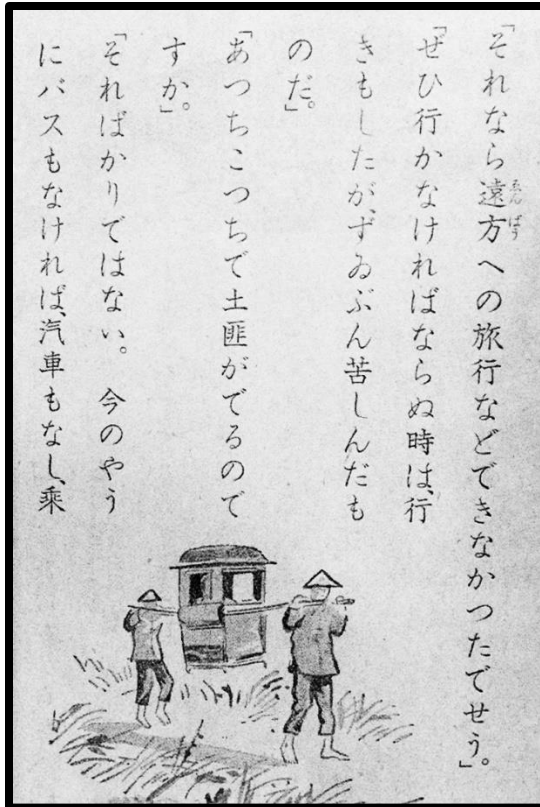 「それなら遠方への旅行などできなかつたでせう」。
「ぜひ行かなければならぬ時は、行
きもしたが、ずゐぶん苦しんだも
のだ。」
「あつちこつちで土匪がでるので
すか。」
「そればかりではない。 今のやう
にバスもなければ、汽車もなし、乘